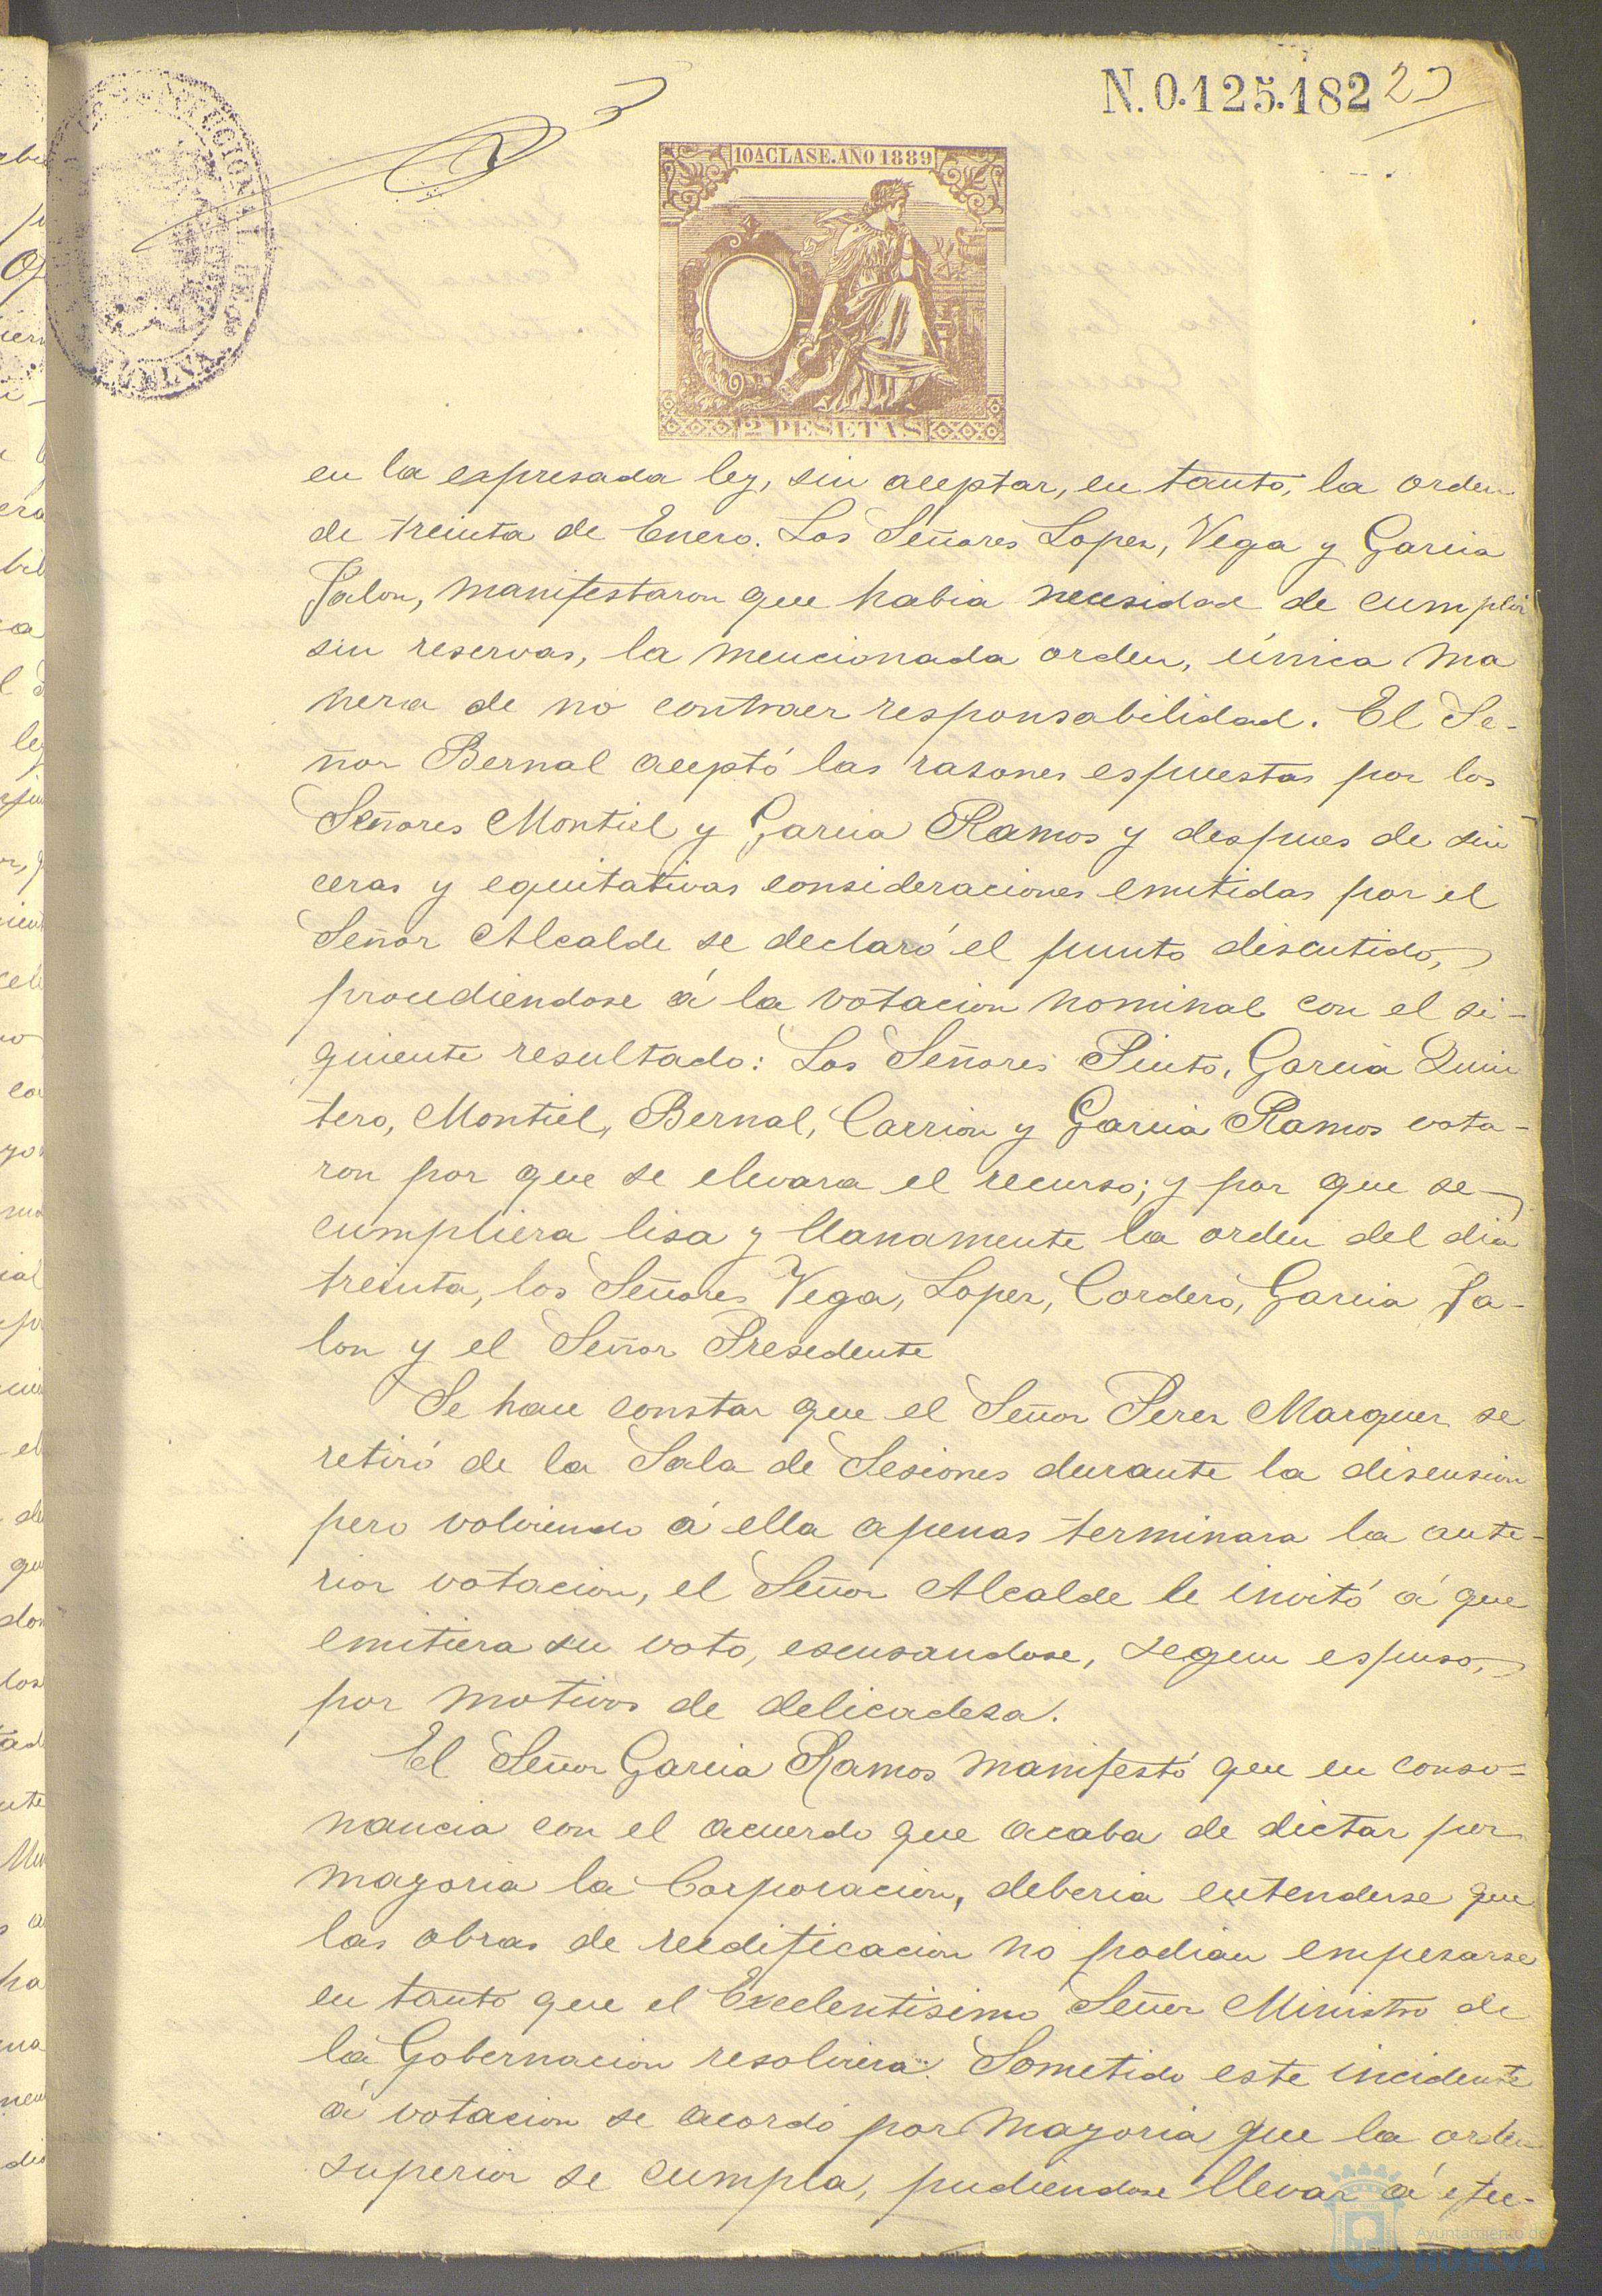 N. 0.125.182
10ª CLASE. AÑO 1889
2 PESETAS
en la espresada ley, sin aceptar, en tanto, la orden
de treinta de Enero. Los Señores Lopez, Vega y Garcia
Jalon, manifestaron que habia necesidad de cumplir
sin reservas, la mencionada orden, única ma
nera de no contraer responsabilidad. El Se-
ñor Bernal aceptó las razones espuestas por los
Señores Montiel y Garcia Ramos y despues de sin
ceras y equitativas consideraciones emitidas por el
Señor Alcalde se declaró el punto discutido,
procediendose á la votacion nominal con el si-
guiente resultado: Los Señores Pinto, Garcia Quin
tero, Montiel, Bernal, Carrion y Garcia Ramos vota-
ron por que se elevara el recurso; y por que se
cumpliera lisa y llanamente la orden del dia
treinta, los Señores Vega, Lopez, Cordero, Garcia Ja-
lon y el Señor Presedente
Se hace constar que el Señor Perez Marquez se
retiró de la Sala de Sesiones durante la discusion
pero volviendo á ella apenas terminara la ante-
rior votacion, el Señor Alcalde le invitó á que
emitiera su voto, escusandose, segun espuso,
por motivos de delicadeza.
El Señor Garcia Ramos manifestó que en conso-
nancia con el acuerdo que acaba de dictar por
mayoria la Corporacion, deberia entenderse que
las obras de reedificacion no podian empezarse
en tanto que el Excelentisimo Señor Ministro de
la Gobernacion resolviera. Sometido este incidente
á votacion se acordó por mayoria que la orden
superior se cumpla, pudiendose llevar á efec-
Ayuntamiento de
HUELVA